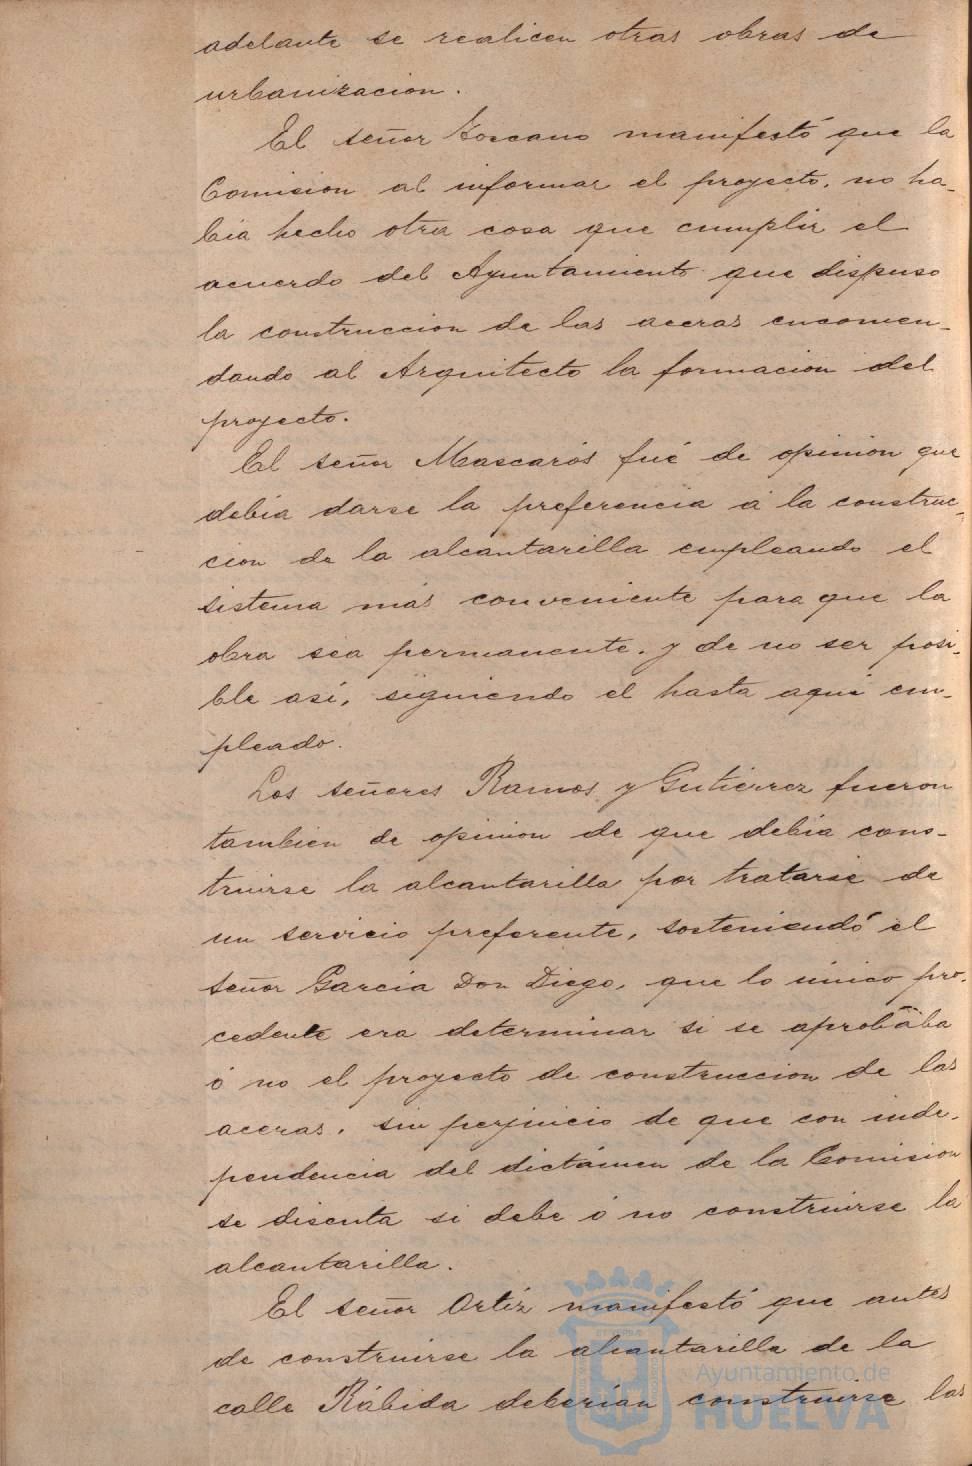 adelante se realicen otras obras de
urbanizacion.
El señor Toscano manifestó que la
Comision al informar el proyecto, no ha-
bia hecho otra cosa que cumplir el
acuerdo del Ayuntamiento que dispuso
la construccion de las aceras encomen-
dando al Arquitecto la formacion del
proyecto.
El señor Mascarós fué de opinion que
debia darse la preferencia á la construc-
cion de la alcantarilla empleando el
sistema más conveniente para que la
obra sea permanente, y de no ser posi-
ble así, siguiendo el hasta aqui em-
pleado.
Los señores Ramos y Gutierrez fueron
tambien de opinion de que debia cons-
truirse la alcantarilla por tratarse de
un servicio preferente, sosteniendó el
señor Garcia Don Diego, que lo único pro-
cedente era determinar si se aprobaba
ó no el proyecto de construccion de las
aceras, sin perjuicio de que con inde-
pendencia del dictámen de la Comision
se discuta si debe ó no construirse la
alcantarilla.
El señor Ortiz manifestó que antes
de construirse la alcantarilla de la
calle Rábida deberian construirse las
Ayuntamiento de
HUELVA